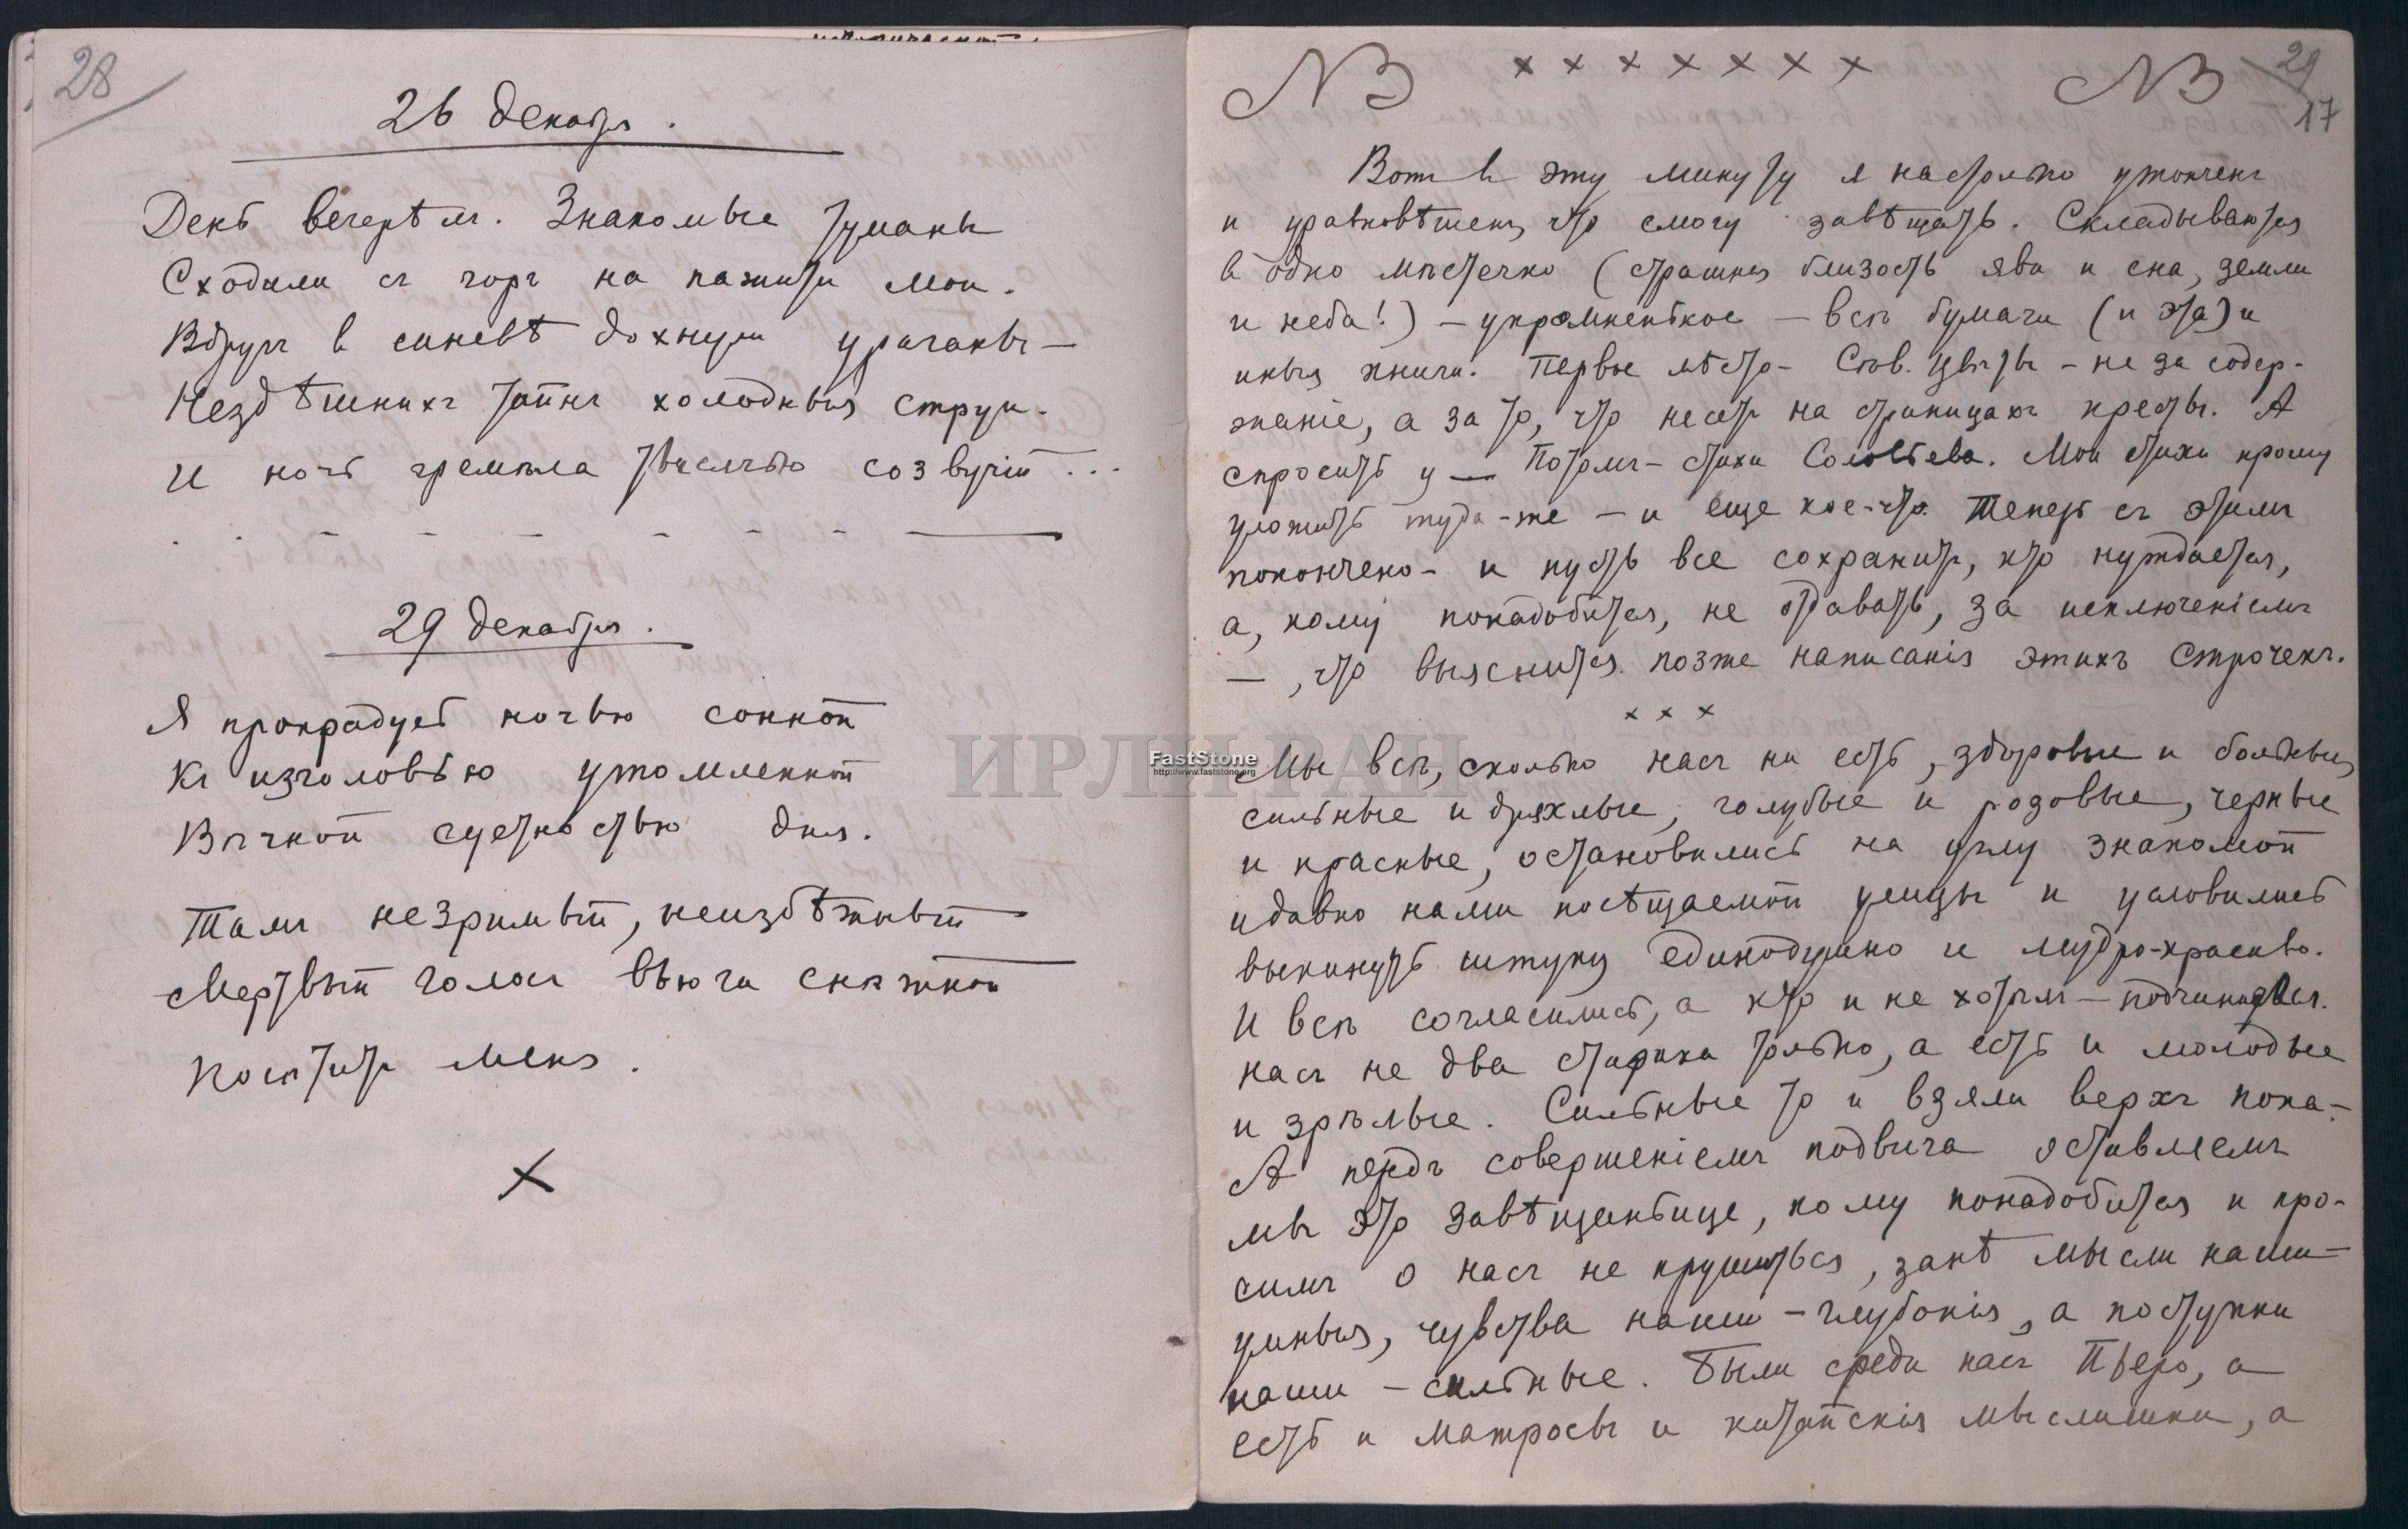 28
26 декабря.
День вечерѣлъ. Знакомые туманы
Сходили съ горъ на пажити мои.
Вдругъ в синевѣ дохнули ураганы –
Нездѣшнихъ тайнъ холодныя струи.
И ночь гремѣла тысячью созвучій ...
29 декабря.
Я прокрадусь ночью сонной
Къ изголовью утомленной
Вѣчной суетностью дня.
Тамъ незримый, неизбѣжный
Мертвый голосъ вьюги снѣжной
Посѣтитъ меня.
×
NB × × × × × × × NB 29
17
Вотъ в эту минуту я настолько утонченъ
и уравновѣшенъ, что смогу завѣщать. Складываются
в одно мѣстечко (страшная близость яви и сна, земли
и неба!) – укромненькое – всѣ бумаги (и эта) и
иныя книги. Первое мѣсто – Сѣв. Цвѣты – не за содер-
жаніе, а за то, что несетъ на страницахъ кресты. А
спросить у — Потомъ – стихи Соловьева. Мои стихи прошу
уложить туда-же – и еще кое-что. Теперь съ этимъ
покончено – и пусть все сохранитъ, кто нуждается,
а, кому понадобится, не отдавать, за исключеніемъ
— , что выяснится позже написанія этихъ строчекъ.
× × ×
Мы всѣ, сколько насъ ни есть, здоровые и больные,
сильные и дряхлые, голубые и розовые, черные
и красные, остановились на углу знакомой
и давно нами посѣщаемой улицы и условились
выкинуть штуку единодушно и мудро-красиво.
И всѣ согласились, а кто и не хотѣлъ – подчинился.
насъ не два старика только, а есть и молодые
и зрѣлые. Сильные то и взяли верхъ пока –
А передъ совершеніемъ подвига оставляемъ
мы это завѣщаньице, кому понадобится и про-
симъ о насъ не крушиться, занѣ мысли наши –
умныя, чувства наши – глубокія, а поступки
наши – сильные. Были среди насъ Пьеро, а
есть и матросы и китайскія мыслишки, а
ИРЛИ РАН
FastStone
http://www.faststone.org